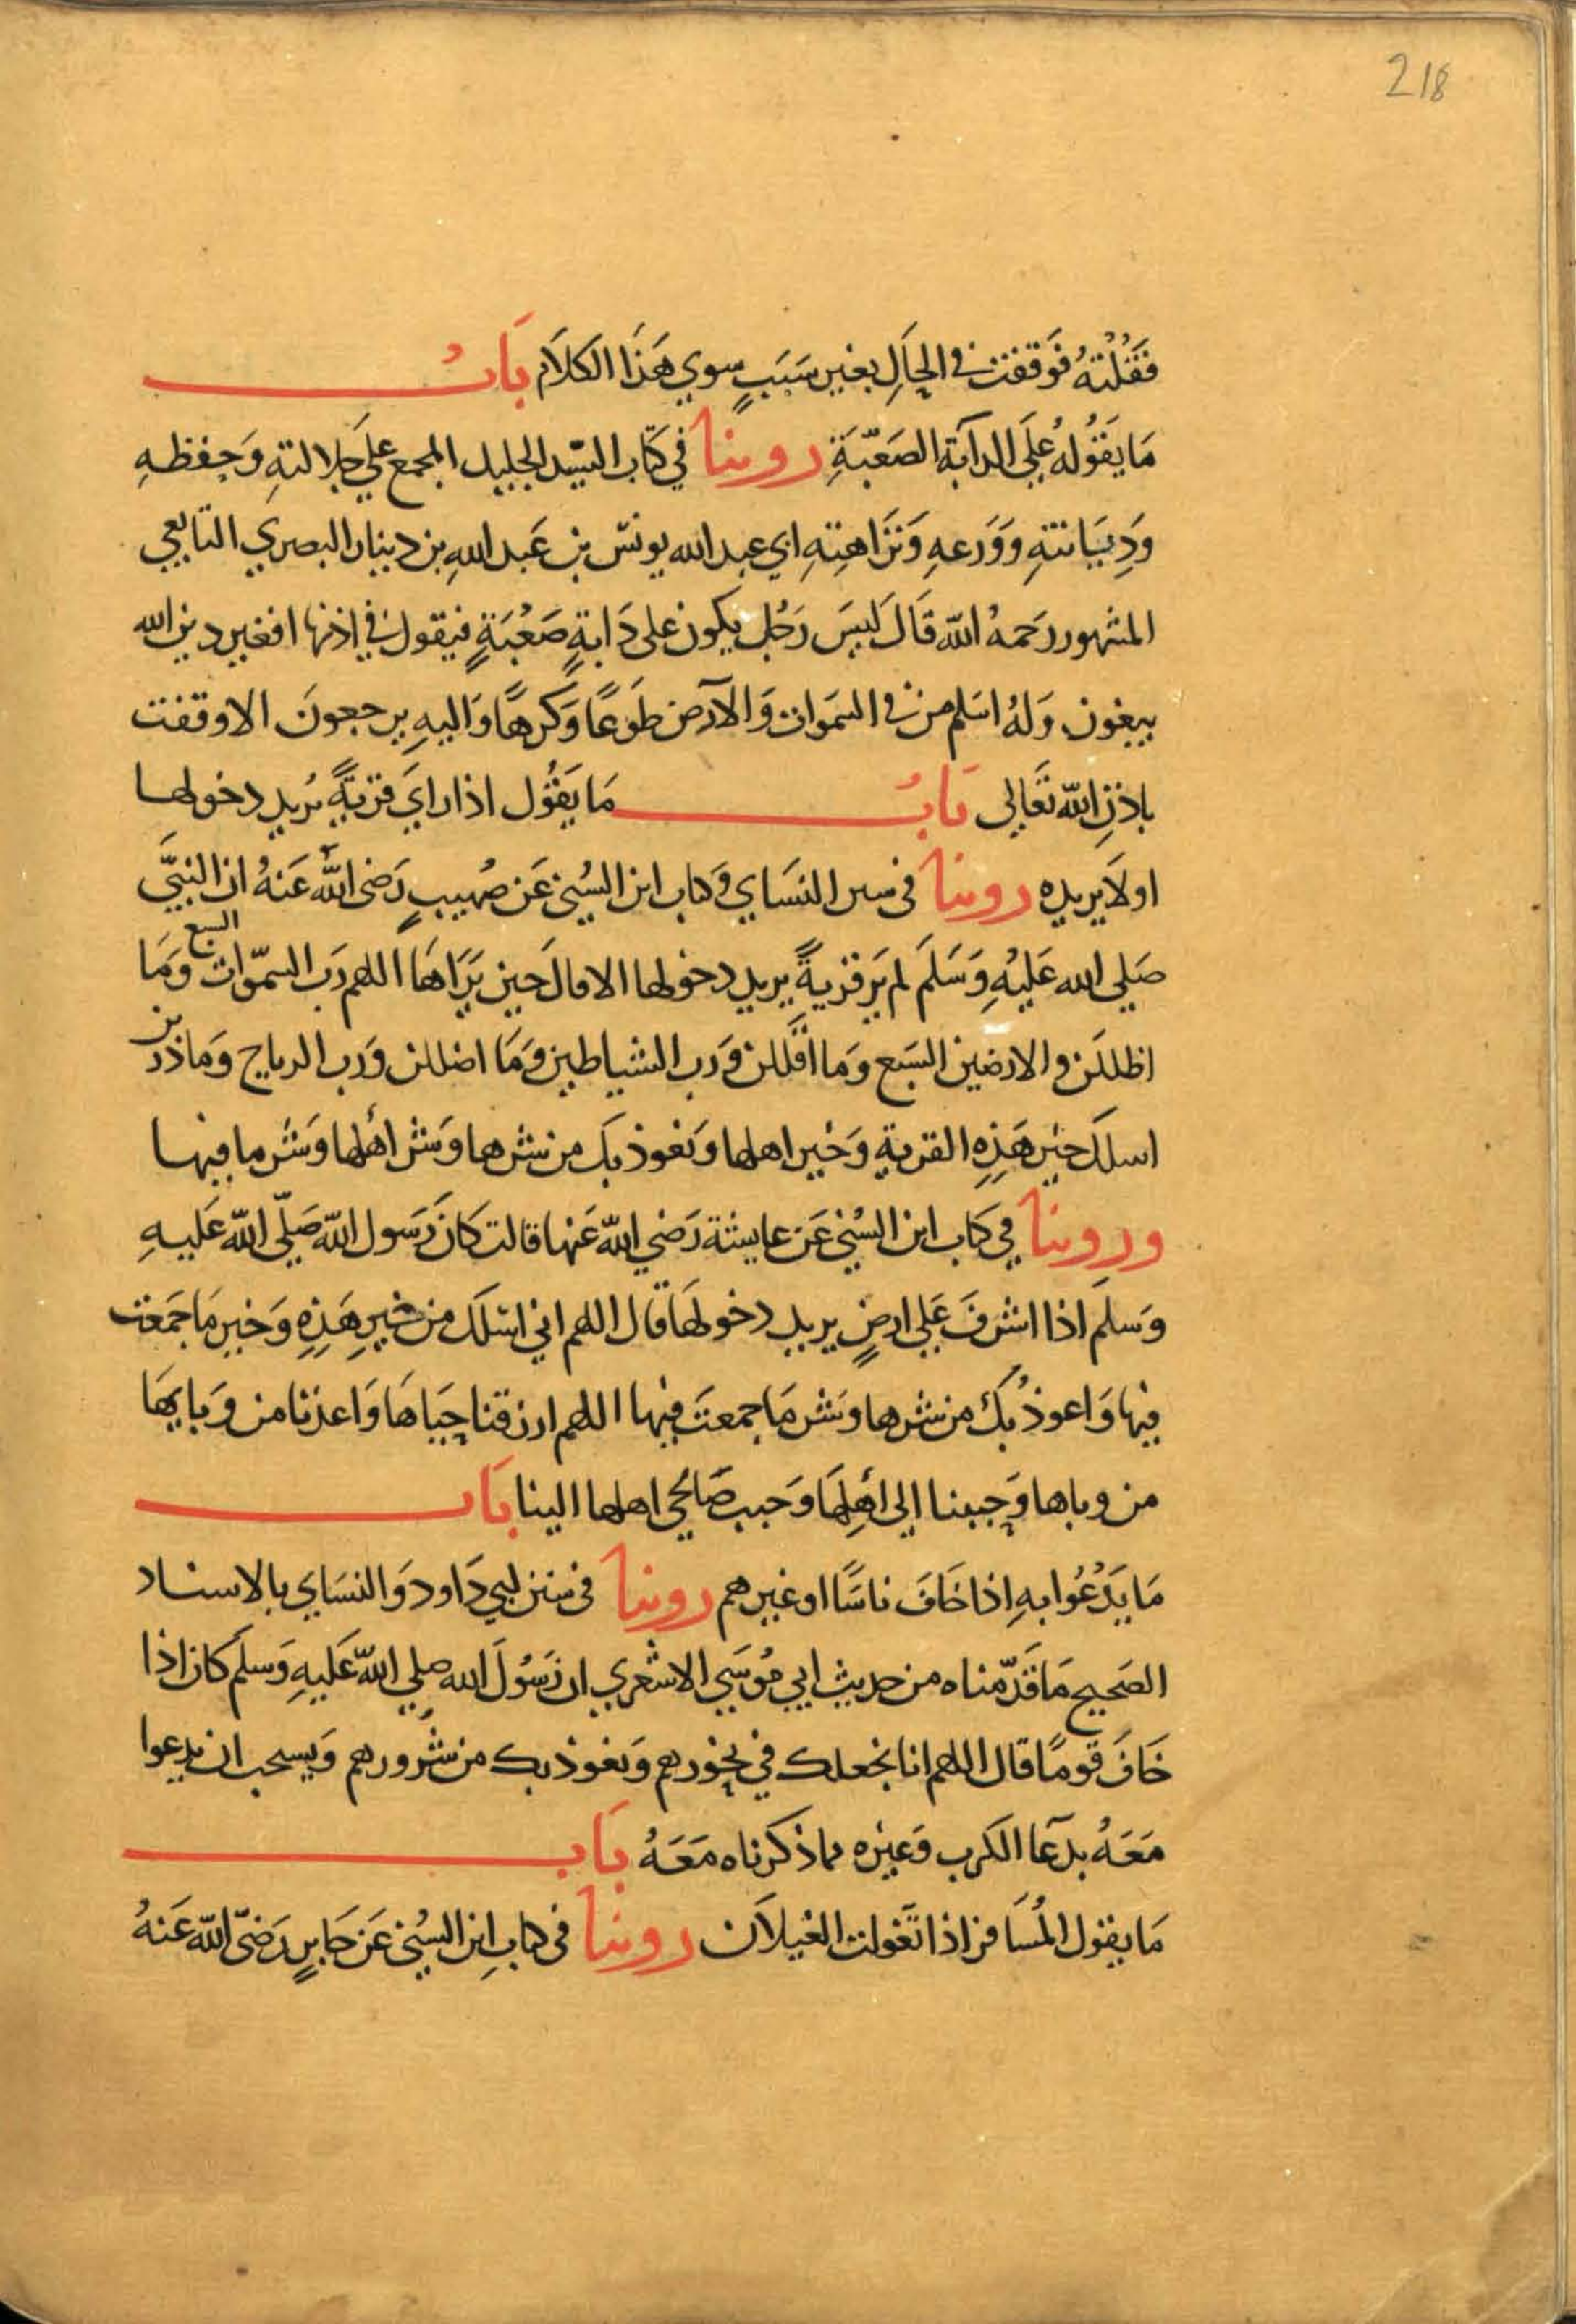 218
فَقُلْتُهُ فَوَقفت في الحَالِ بغير سَبَبٍ سوي هَذَا الكلاَم بَابُ
مَا يَقُولهُ عَلَي الدآبة الصَعّبَةِ روينا في كتاب السيّد الجليل المجمع علي جلالتهِ وَحِفظهِ
وَدِيَانتهِ وَوَرَعهِ وَنَزَاهتِهِ ابي عبد الله يونسّ بن عَبد اللهِ بن دينار البصري التابعي
المشهور رحَمهُ اللّه قَالَ لَيسَ رَجُل يكون على دَابةٍ صَعْبَةٍ فيقول في اذنها افغير دين الله
يبغون وَلهُ اسَلم من في السَموات وَالآرض طَوعًا وَكَرهًا وَاليهِ يرجعونَ الا وقفت
باذنِ اللّه تعَالى بَابُ مَا يَقُول اذا راي قَريَةً يُريد دخولها
او لاَ يريده روينا في سنن النسَاي وَكتاب ابن السُني عَن صُهيبٍ رَضى اللّه عَنهُ ان النبيَّ
صَلي الله عَليْهِ وَسَلمَ لم يَر قريةً يريد دخولها الا قال حين يَرَاهَا اللهم رَب السمّوات السبع وَمَا
اظللَن والارضين السَبع وَما اقَللن وَرب الشياطين وَمَا اضللن وَرب الرياح وَما ذرين
اسلَك خيْر هَذِهِ القرية وَخير اهلها وَنعوذ بكَ من شرها وَشر اهْلها وَشَر ما فيها
وروينا في كتاب ابن السُني عَن عايشة رَضي اللّه عَنها قالت كَانَ رَسول اللّه صَلّى اللّه عَليهِ
وَسلمَ اذا اشرفَ عَلي ارضٍ يريد دخولهَا قَال اللهم اني اسَلك من خيرِ هَذِهِ وَخير مَا جمَعت
فيها وَاعوذُ بكَ من شرها وَشر مَا جمعتَ فيها اللهم ارزقنا حِيَاهَا وَاعذنا من وَبايهَا
من وباها وَحببنا الى اهلِهَا وَحبب صَالحي اهلها الينا بَاب
مَا يَدْعُوا بهِ اذا خَافَ ناسًا او غيرهم روينا في سنن ابي دَاود وَالنسَاي بالاسناد
الصَحيح مَا قَدّمناه من حديث ابي مُوسَي الاشعري ان رَسُولَ الله صلي اللّه عَليهِ وَسلمَ كان اذا
خَافَ قومًا قال اللهم انا نجعلك في نحورهم وَنعوذ بك من شُرورهم وَيستحب ان يدعوا
مَعَهُ بدعَآ الكرب وَغيره مما ذكرناه مَعَهُ بَاب
مَا يقول المُسَافر اذا تَغَولت الغيلاَن روينا في كتابِ ابن السُني عَن جَابرٍ رَضىّ اللّه عَنهُ